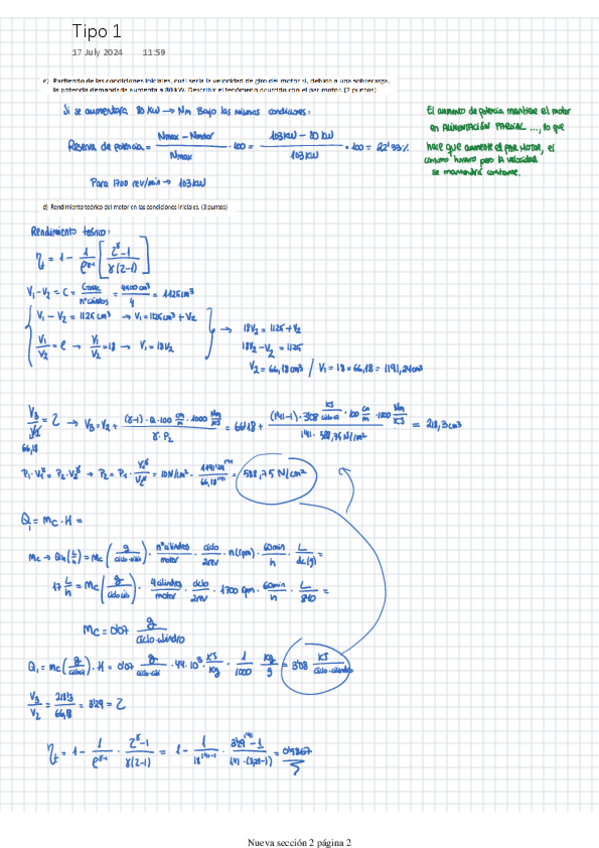 Tipo 1
17 July 2024 11:59
c) Partiendo de las condiciones iniciales, cuál sería la velocidad de giro del motor si, debido a una sobrecarga,
la potencia demandada aumenta a 80 kW. Describir el fenómeno ocurrido con el par motor. (2 puntos)
Si se aumentara 80 KW → Nm Bajo las mismas condiciones:
Reserva de potencia = (Nmax - Nmotor)/Nmax · 100 = (103KW - 80 KW)/103KW · 100 = 22'33%
Para 1700 rev/min → 103KW
El aumento de potencia mantiene el motor
en ALIMENTACIÓN PARCIAL ..., lo que
hace que aumente el PAR MOTOR, el
consumo horario pero la velocidad
se mantendrá constante.
d) Rendimiento teórico del motor en las condiciones iniciales. (3 puntos)
Rendimiento teórico:
η_t = 1 - 1/ρ^(γ-1) [(Z^γ - 1)/(γ(Z-1))]
V1 - V2 = C = /nº cilindros = 4500 cm³/4 = 1125 cm³
V1 - V2 = 1125 cm³ → V1 = 1125 cm³ + V2
V1/V2 = ρ → V1/V2 = 18 → V1 = 18V2
→ 18V2 = 1125 + V2
18V2 - V2 = 1125
V2 = 66,18 cm³ / V1 = 18 × 66,18 = 1191,24 cm³
V3/V2 = Z → V3 = V2 + ((γ-1) · Q · 100 cm/m · 1000 Nm/KJ)/(γ · P2) = 66'18 + ((1'41-1) · 3'08 KJ/ciclo·cil · 100 cm/m · 1000 Nm/KJ)/(1'41 · 588,75 N/cm²) = 218,3 cm³
66,18
P1 · V1^γ = P2 · V2^γ → P2 = P1 · V1^γ/V2^γ = 10 N/cm² · 1191'24^1'41/66,18^1'41 = 588,75 N/cm²
Q1 = mc · H =
mc → Qh (L/h) = mc (g/ciclo·cilin) · nº cilindros/motor · ciclo/2rev · n (rpm) · 60min/h · L/dc(g) =
17 L/h = mc (g/ciclo·cil) · 4 cilindros/motor · ciclo/2rev · 1700 rpm · 60min/h · L/840 =
mc = 0'07 g/ciclo·cilindro
Q1 = mc (g/ciclo·cil) · H = 0'07 g/ciclo·cil · 44·10³ KJ/Kg · 1/1000 Kg/g = 3'08 KJ/ciclo·cilindro
V3/V2 = 218'3/66,18 = 3'29 = Z
η_t = 1 - 1/ρ^(γ-1) · (Z^γ - 1)/(γ(Z-1)) = 1 - 1/18^(1'41-1) · (3'29^1'41 - 1)/(1'41 · (3,29-1)) =
Nueva sección 2 página 2